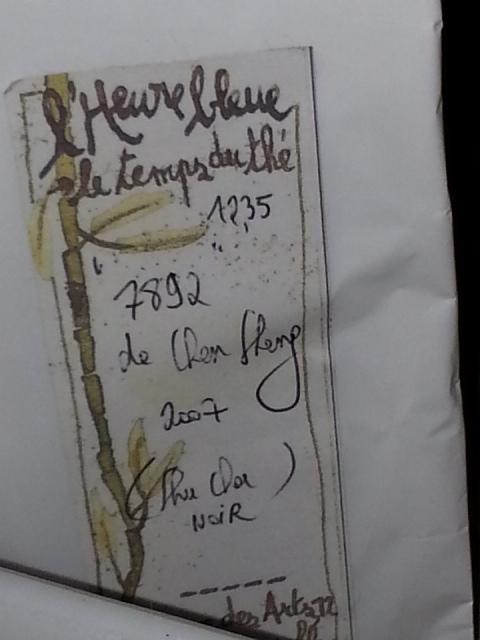 l'Heure bleue
le temps du thé
1235
" "
7892
de Chen Sheng
2007
(Shu Cha)
NOIR
des Arts